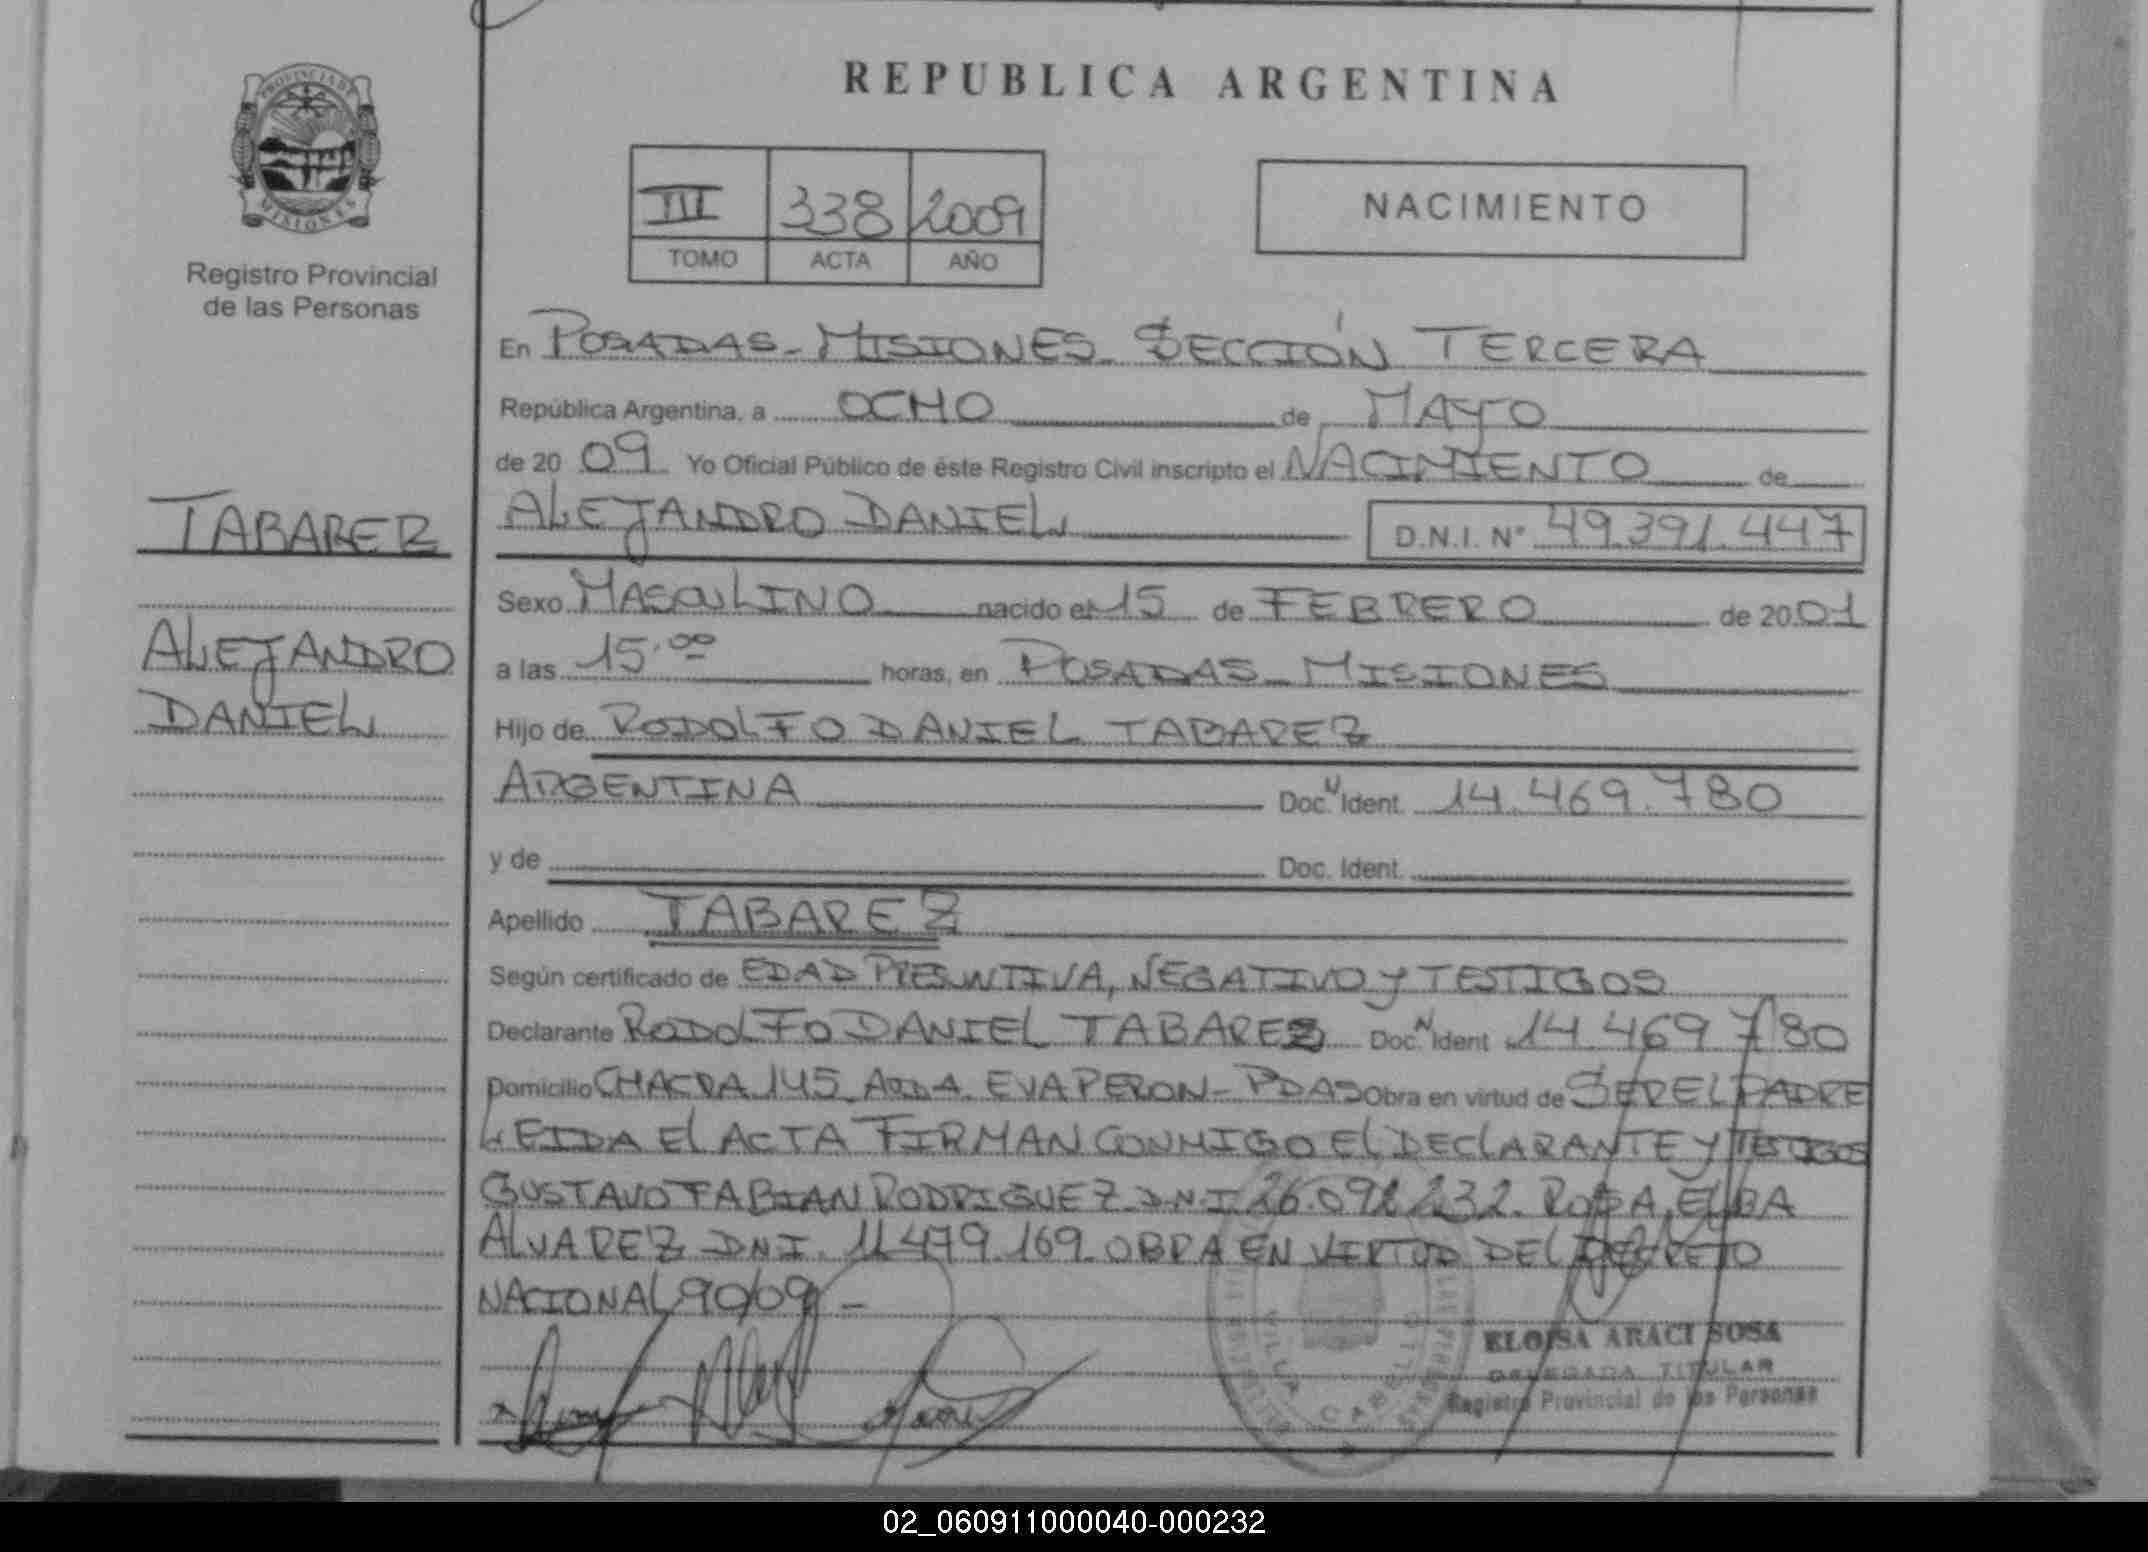 REPUBLICA ARGENTINA
PROVINCIA DE
MISIONES
Registro Provincial
de las Personas
III 338 2009
TOMO ACTA AÑO
NACIMIENTO
En POSADAS - MISIONES - SECCIÓN TERCERA
República Argentina, a OCHO de MAYO
de 20 09 Yo Oficial Público de éste Registro Civil inscripto el NACIMIENTO de
ALEJANDRO DANIEL D.N.I. Nº 49.391.447
TABAREZ
Sexo MASCULINO nacido el 15 de FEBRERO de 20 01
ALEJANDRO
DANIEL
a las 15.00 horas, en POSADAS - MISIONES
Hijo de RODOLFO DANIEL TABAREZ
ARGENTINA Doc. N Ident. 14.469.780
y de Doc. Ident.
Apellido TABAREZ
Según certificado de EDAD PRESUNTIVA, NEGATIVO Y TESTIGOS
Declarante RODOLFO DANIEL TABAREZ Doc. N Ident 14 469 780
Domicilio CHACRA 145 AVDA. EVA PERON - PDAS Obra en virtud de SER EL PADRE
LEIDA El ACTA FIRMAN CONMIGO El DEClARANTE Y TESTIGOS
GUSTAVO FABIAN RODRIGUEZ D.N.I. 232. ROSA ELBA
ALVAREZ DNI. 11 479 169 OBRA EN VIRTUD DEL DECRETO
NACIONAL 90/09 -
VILLA CABELLO
ELOISA ARACI SOSA
DELEGADA TITULAR
Registro Provincial de las Personas
02_060911000040-000232